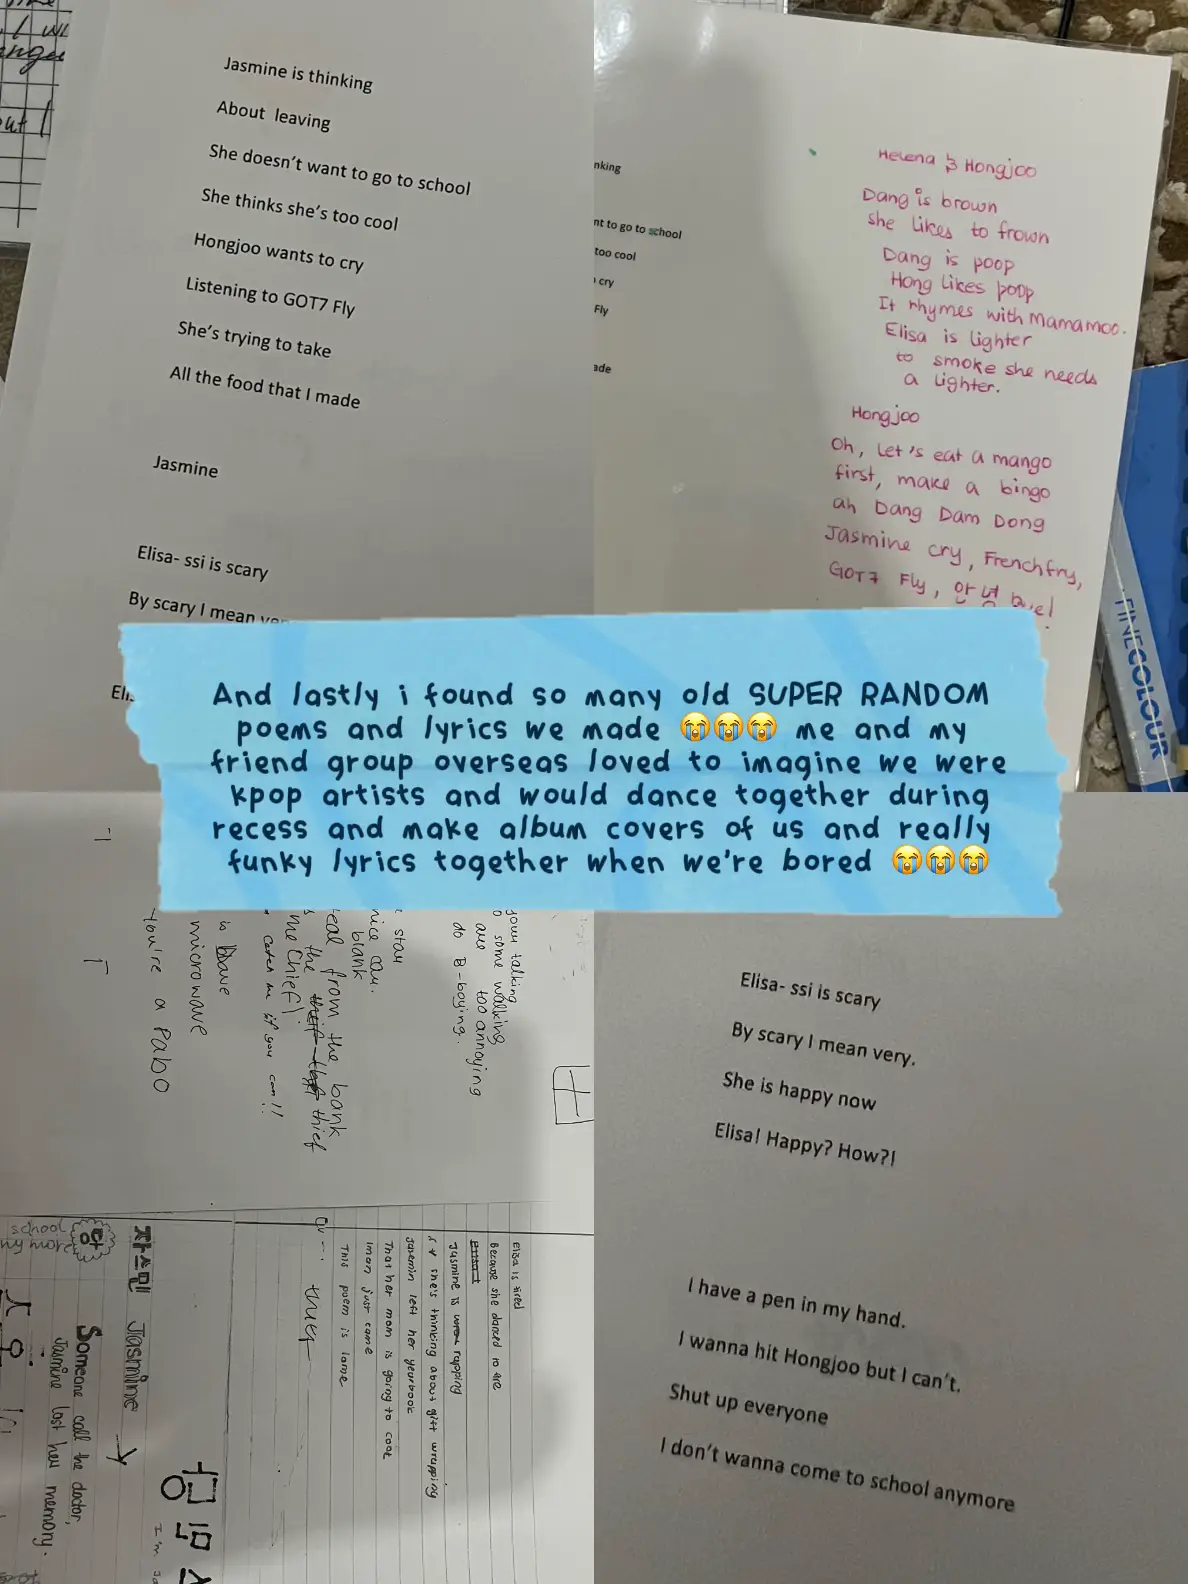 I
ange
out I
Jasmine is thinking
About leaving
She doesn't want to go to school
She thinks she's too cool
Hongjoo wants to cry
Listening to GOT7 Fly
She's trying to take
All the food that I made
Jasmine
Elisa- ssi is scary
By scary I mean
nking
nt to go to school
too cool
cry
Fly
ade
Helena & Hongjoo
Dang is brown
she likes to frown
Dang is poop
Hong likes poop
It rhymes with Mamamoo.
Elisa is lighter
to smoke she needs
a lighter.
Hongjoo
Oh, Let's eat a mango
first, make a bingo
ah Dang Dam Dong
Jasmine cry, Frenchfry,
GOT7 Fly,
FINECOLOUR
And lastly i found so many old SUPER RANDOM
poems and lyrics we made 😭😭😭 me and my
friend group overseas loved to imagine we were
kpop artists and would dance together during
recess and make album covers of us and really
funky lyrics together when we're bored 😭😭😭
your talking
some walking
are too annoying
do B-boying.
stay
nice
blank
eal from the bank
the thief
me Chief)
catch me if you can!!
is
microwave
You're a Pabo
Elisa is tired
Because she danced to
Jasmine is rapping
she's thinking about gift wrapping
left her yearbook
That her mom is going to cook
Iman just came
This poem is lame
school
ny more
자스민 Jasmine →
Someone call the doctor,
Jasmine lost her memory.
I'm
Elisa- ssi is scary
By scary I mean very.
She is happy now
Elisa! Happy? How?!
I have a pen in my hand.
I wanna hit Hongjoo but I can't.
Shut up everyone
I don't wanna come to school anymore